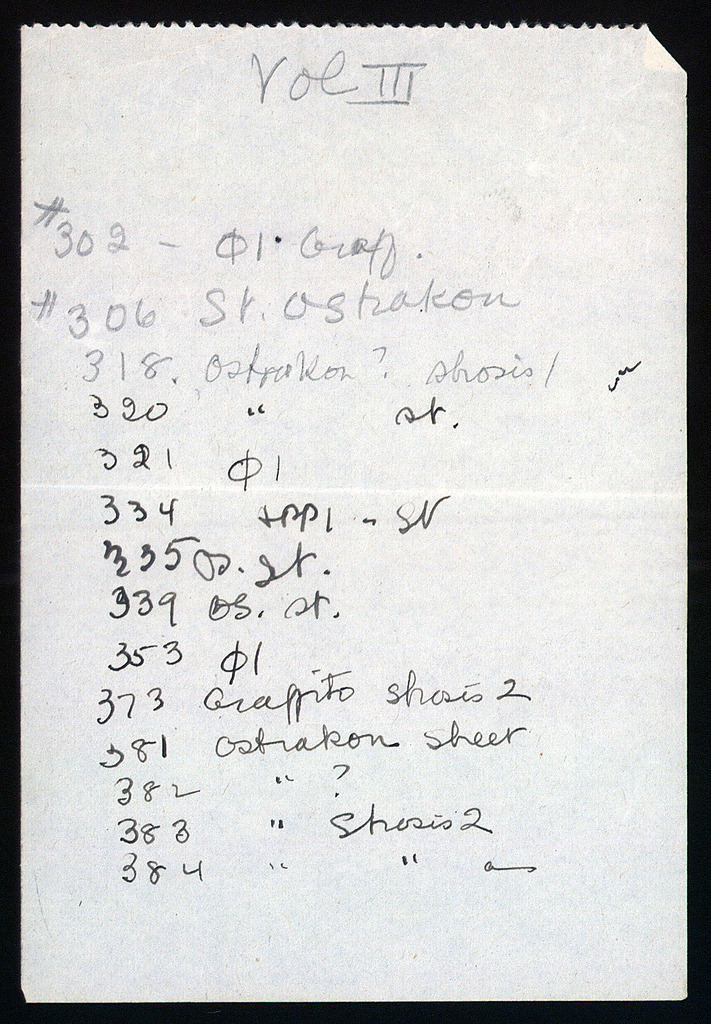 Vol III
#302 - Φ1. Graff.
#306 St. Ostrakon
318. Ostrakon? strosis 1
320 " st.
321 Φ1
334 - St
335 Os. St.
339 Os. st.
353 Φ1
373 Graffito strosis 2
381 Ostrakon street
382 " ?
383 " Strosis 2
384 " "